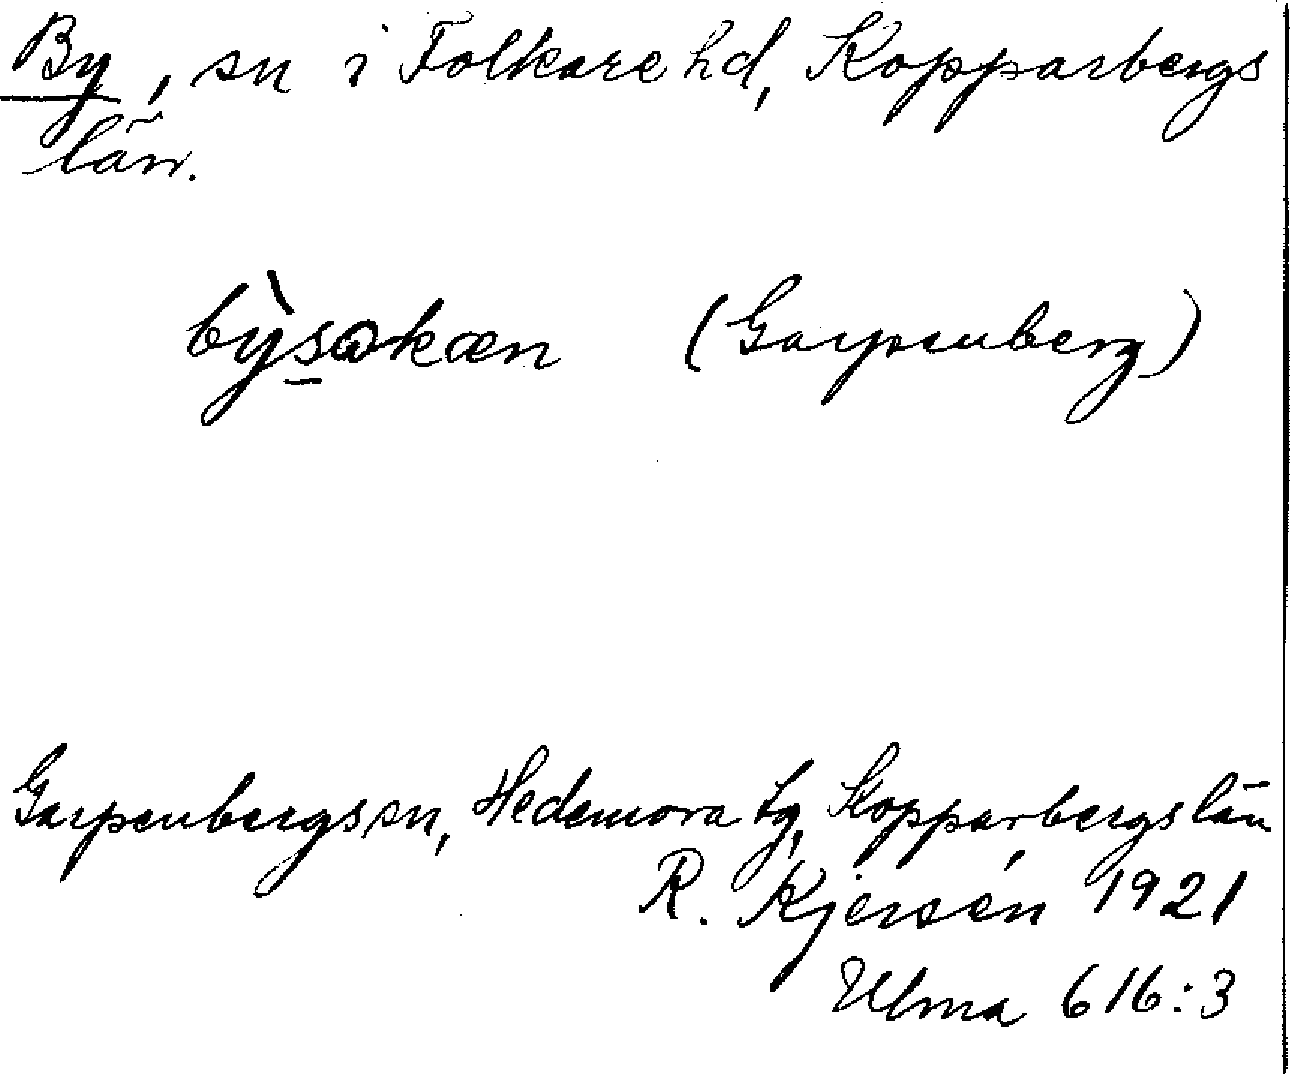 By, sn i Folkare hd, Kopparbergs
län.
bỳsωkæn (Garpenberg)
Garpenbergs sn, Hedemora tg, Kopparbergs län
R. Kjersén 1921
Ulma 616:3